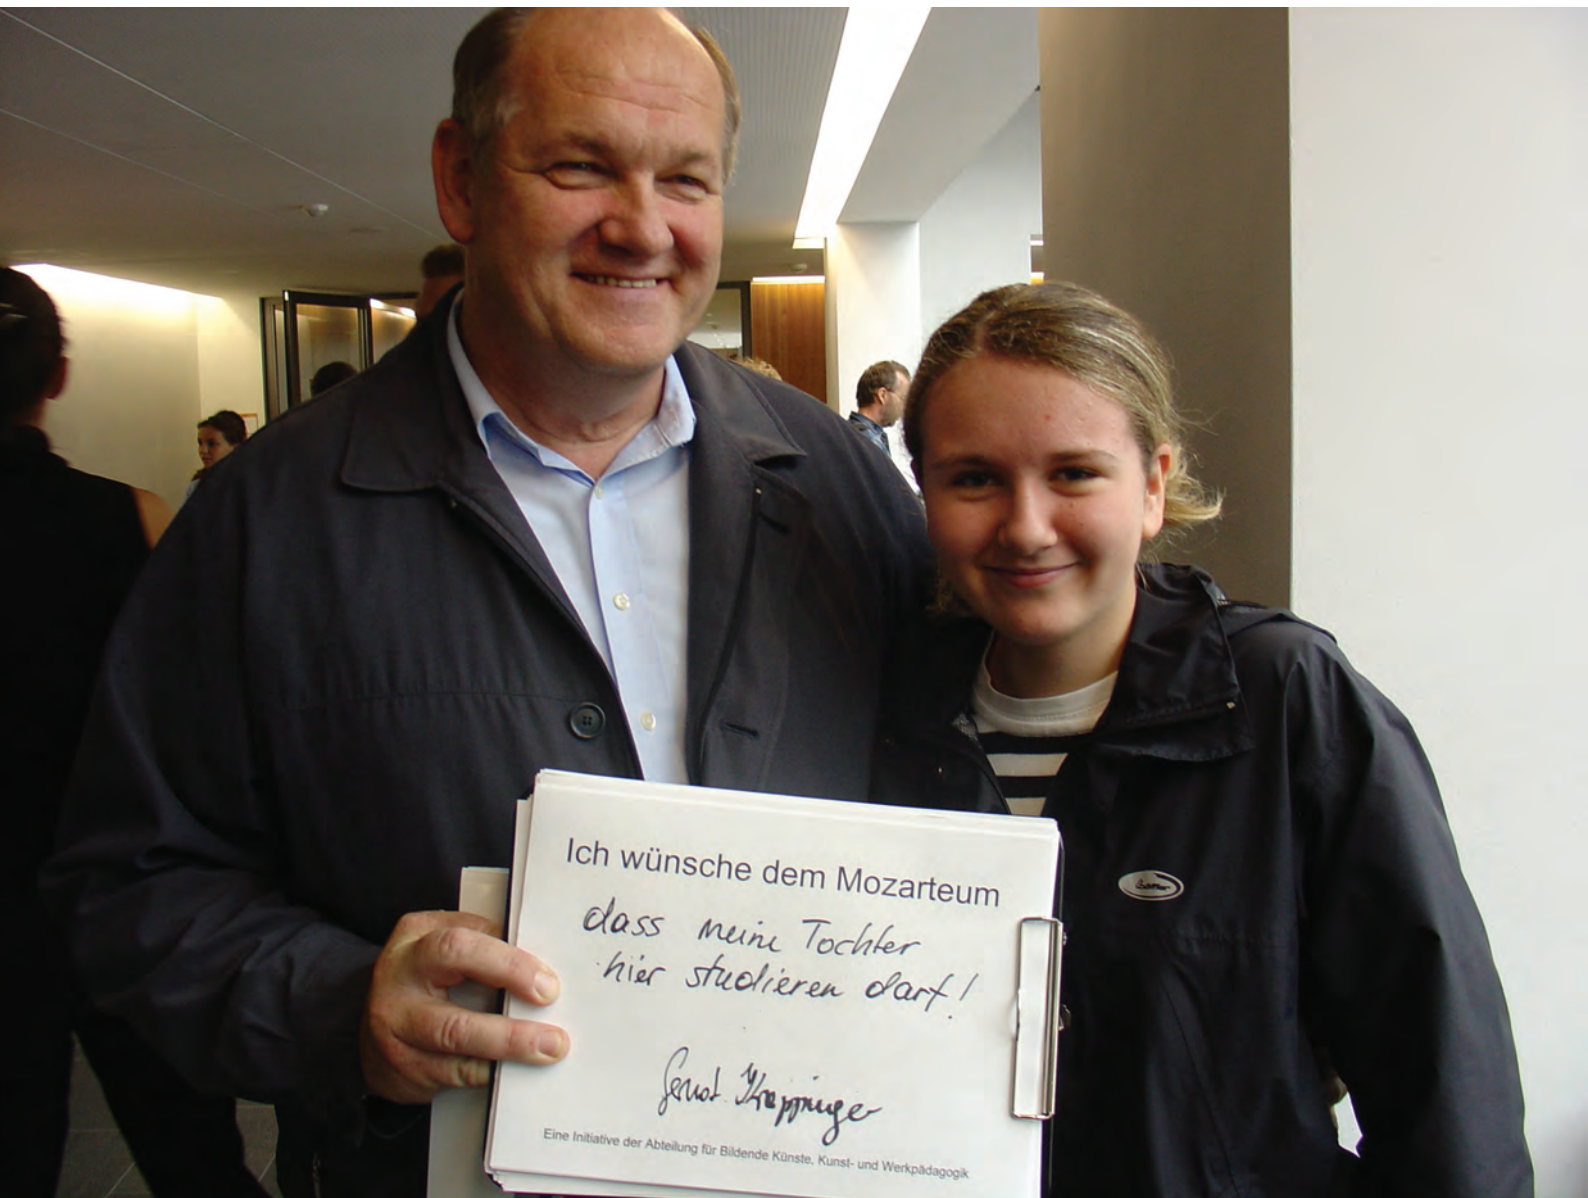 Ich wünsche dem Mozarteum
dass meine Tochter
hier studieren darf!
Gernot Krappinger
Eine Initiative der Abteilung für Bildende Künste, Kunst- und Werkpädagogik